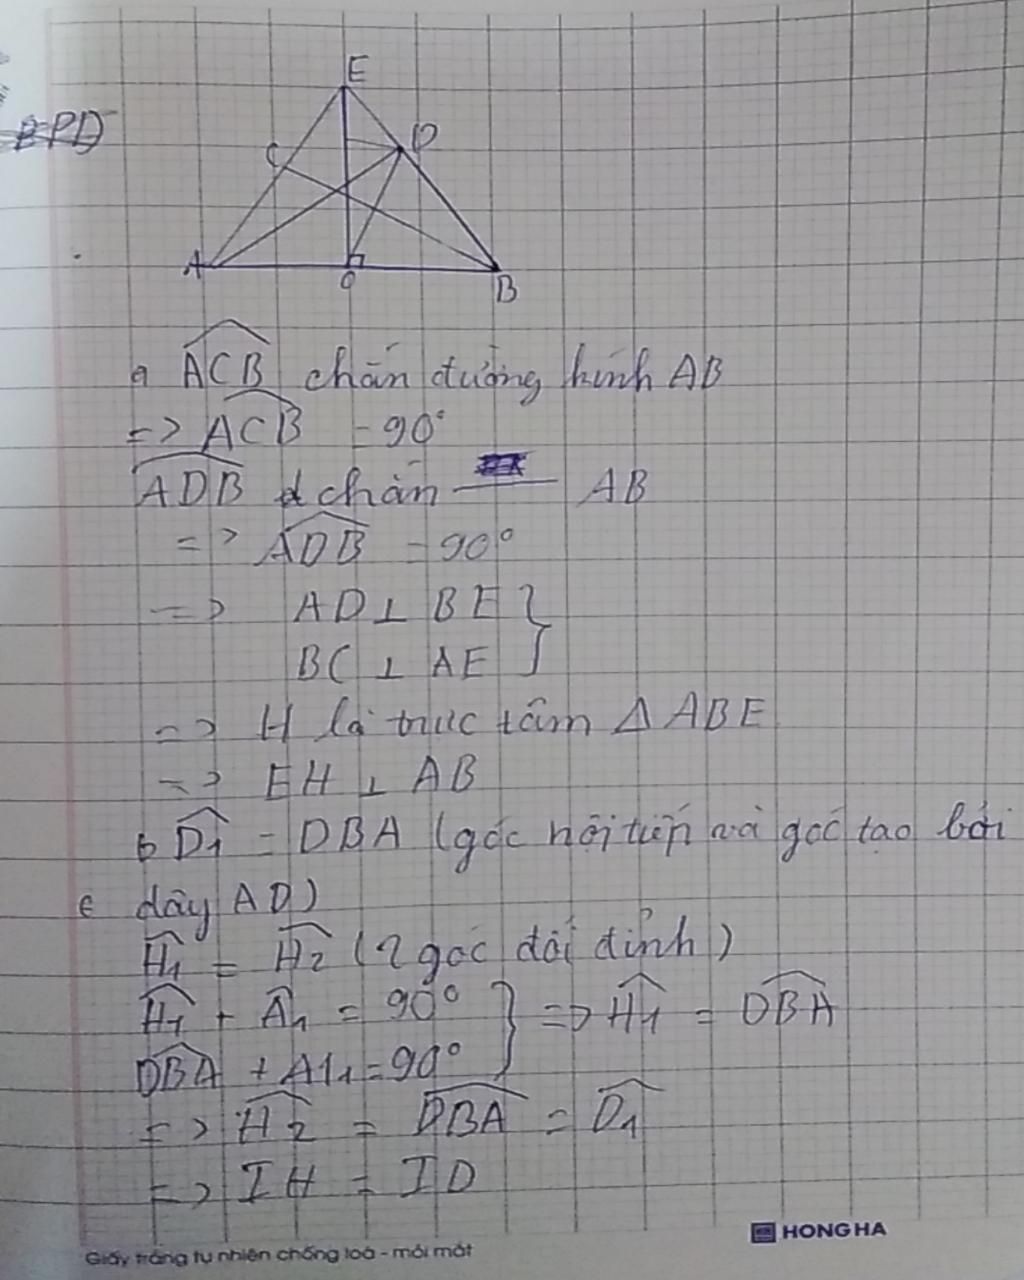 E
D
C
A
O
B
a ACB chắn đường kính AB
=> ACB = 90°
ADB chắn — AB
=> ADB = 90°
=> AD ⊥ BE }
BC ⊥ AE
=> H là trực tâm Δ ABE
=> EH ⊥ AB
b D1 = DBA (góc nội tiếp và góc tạo bởi
dây AD)
H1 = H2 (2 góc đối đỉnh)
H1 + A1 = 90° } => H1 = DBA
DBA + A1 = 90°
=> H2 = DBA = D1
=> IH = ID
HONG HA
Giấy trắng tự nhiên chống loá - mỏi mắt